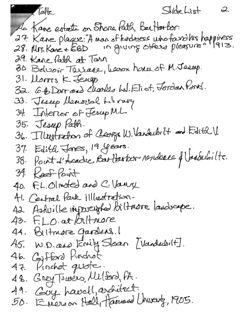 Talk. Slide List 2.
26. Kane estate on Shore Path, Bar Harbor.
27. Kane plaque: "A man of kindness who found his happiness
28. Mrs. Kane & EBD in giving others pleasure" 1913.
29. Kane Path at Tarn
30. Belvoir Terrace, Lenox home of M. Jesup.
31. Morris K. Jesup
32. G. Dorr and Charles W. Eliot, Jordan Pond.
33. Jesup Memorial Library
34. Interior of Jesup M.L.
35. Jesup Path.
36. Illustration of George W. Vanderbilt and Edith V.
37. Edith Jones, 19 years.
38. Point d'Acadie, Bar Harbor residence of Vanderbilts.
39. Reef Point
40. F.L. Olmsted and C. Vaux
41. Central Park Illustration.
42. Asheville unimproved Biltmore landscape.
43. F.L.O. at Biltmore
44. Biltmore Gardens. 1
45. W.D. and Emily Sloan [Vanderbilt].
46. Gifford Pinchot
47. Pinchot quote.
48. Grey Towers, Milford, PA.
49. Guy Lowell, architect
50. Emerson Hall, Harvard University, 1905.